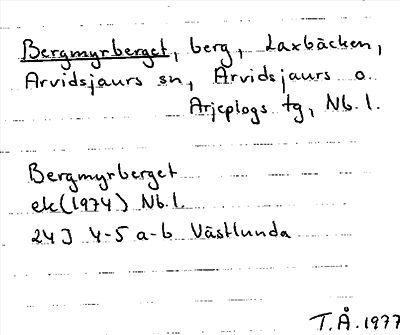 Bergmyrberget, berg, Laxbäcken,
Arvidsjaurs sn, Arvidsjaurs o.
Arjeplogs tg, Nb. l.
Bergmyrberget
ek (1974) Nb. l.
24J 4-5 a-b Västlunda
T.Å. 1977